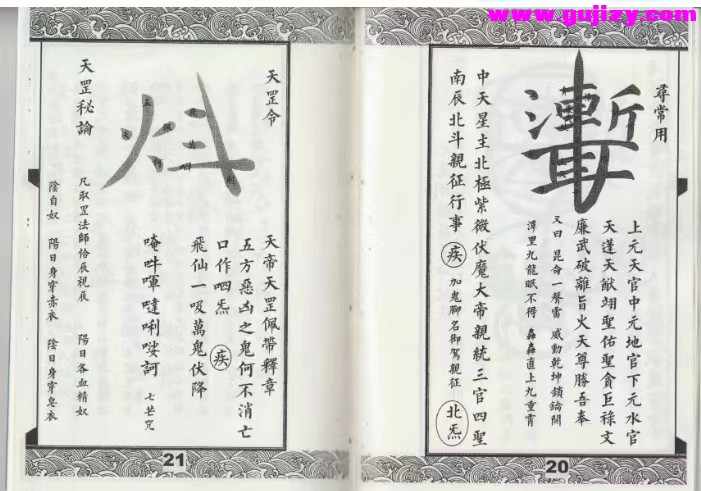 www.gujizy.com
尋常用
上元天官中元地官下元水官
天蓬天猷翊聖佑聖貪巨祿文
廉武破離旨火天尊勝吾奉
又曰 昆侖一聲雷 威動乾坤鎖鑰開
潭里九龍眠不得 轟轟直上九重霄
中天星主北極紫微伏魔大帝親統三官四聖
南辰北斗親征行事 疾 加鬼聊名御駕親征 北炁
20
天罡令
天帝天罡佩帶釋章
五方惡凶之鬼何不消亡
口作呬炁 疾
飛仙一吸萬鬼伏降
唵吽 噠唎 訶 七芒咒
天罡秘論
凡取罡法師恰辰視辰 陽日各血精奴
陰自奴 陽日身穿赤衣 陰日身穿皂衣
21